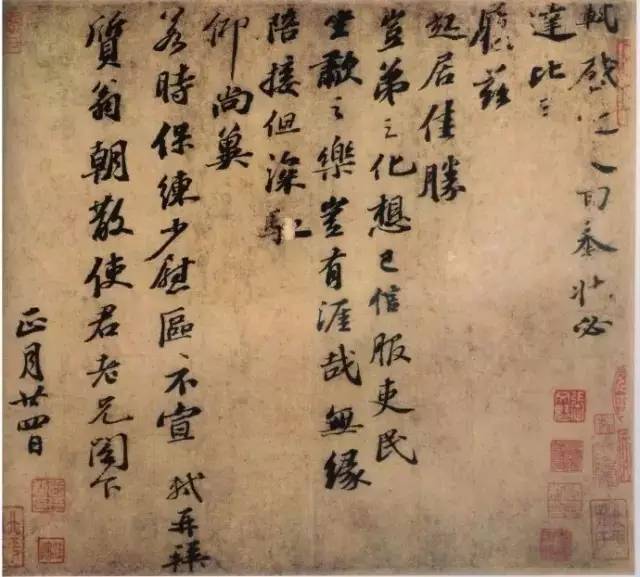 軾啟近人回奉狀必
達比〻
履茲
起居佳勝
豈弟之化想已信服吏民
坐歗之樂豈有涯哉無緣
陪接但深馳
仰尚冀
若時保練少慰區〻不宣 軾再拜
質翁朝散使君老兄閤下
正月廿四日